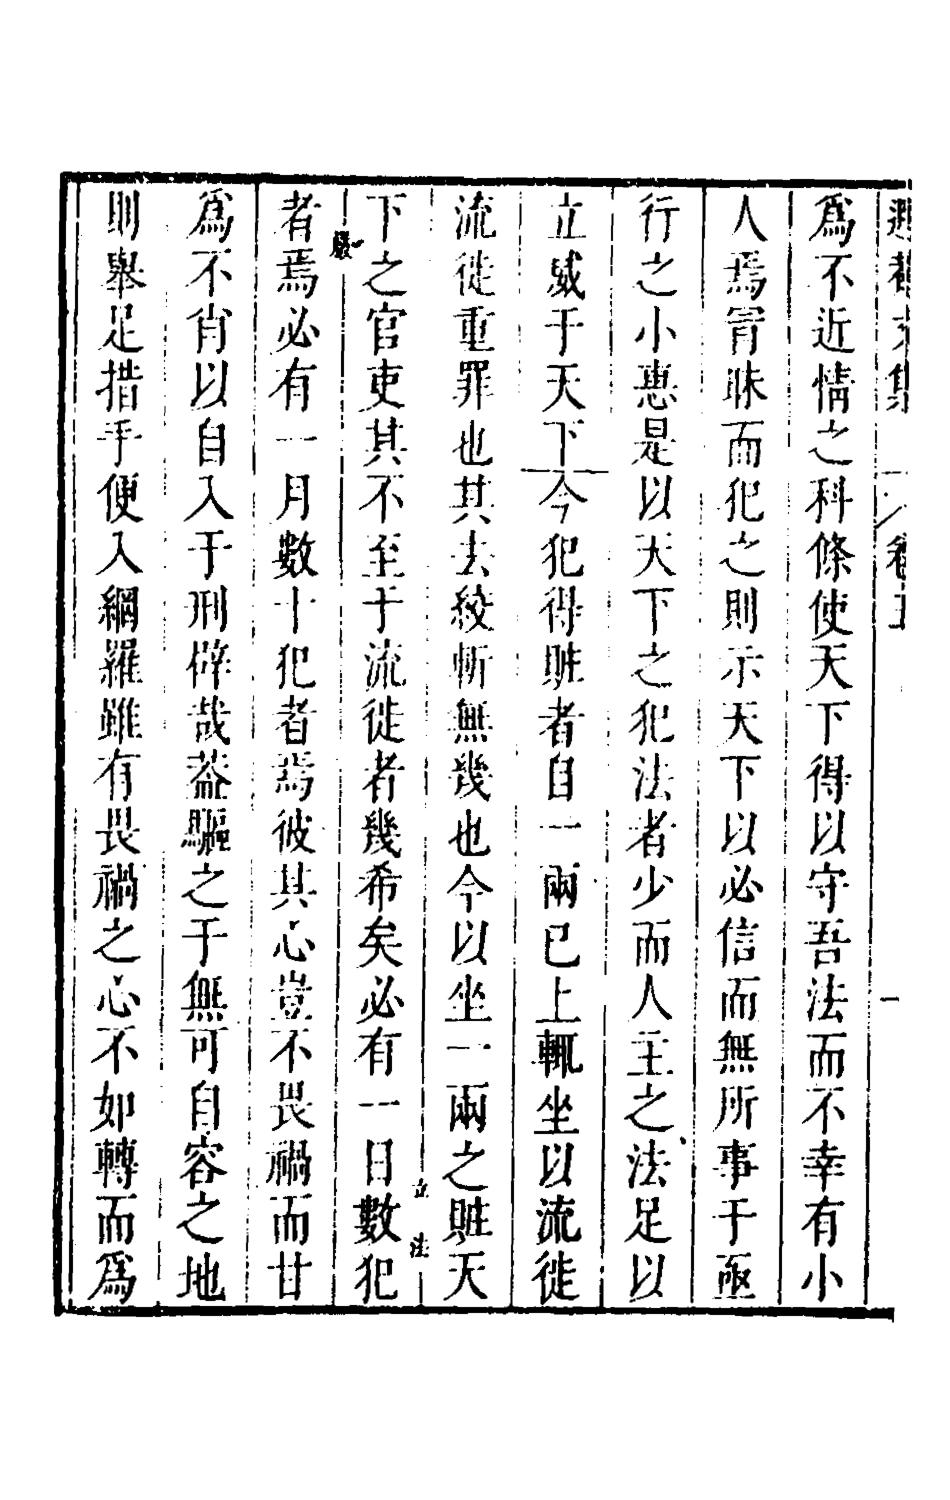 卷五
一
爲不近情之科條使天下得以守吾法而不幸有小
人焉冐昧而犯之則示天下以必信而無所事于亟
行之小惠是以天下之犯法者少而人主之法足以
立威于天下今犯得賍者自一兩已上輒坐以流徙
流徙重罪也其去絞斬無幾也今以坐一兩之賍天
立法
嚴
下之官吏其不至于流徙者幾希矣必有一日數犯
者焉必有一月數十犯者焉彼其心豈不畏禍而甘
爲不肖以自入于刑辟哉葢驅之于無可自容之地
則舉足措手便入網羅雖有畏禍之心不如轉而爲